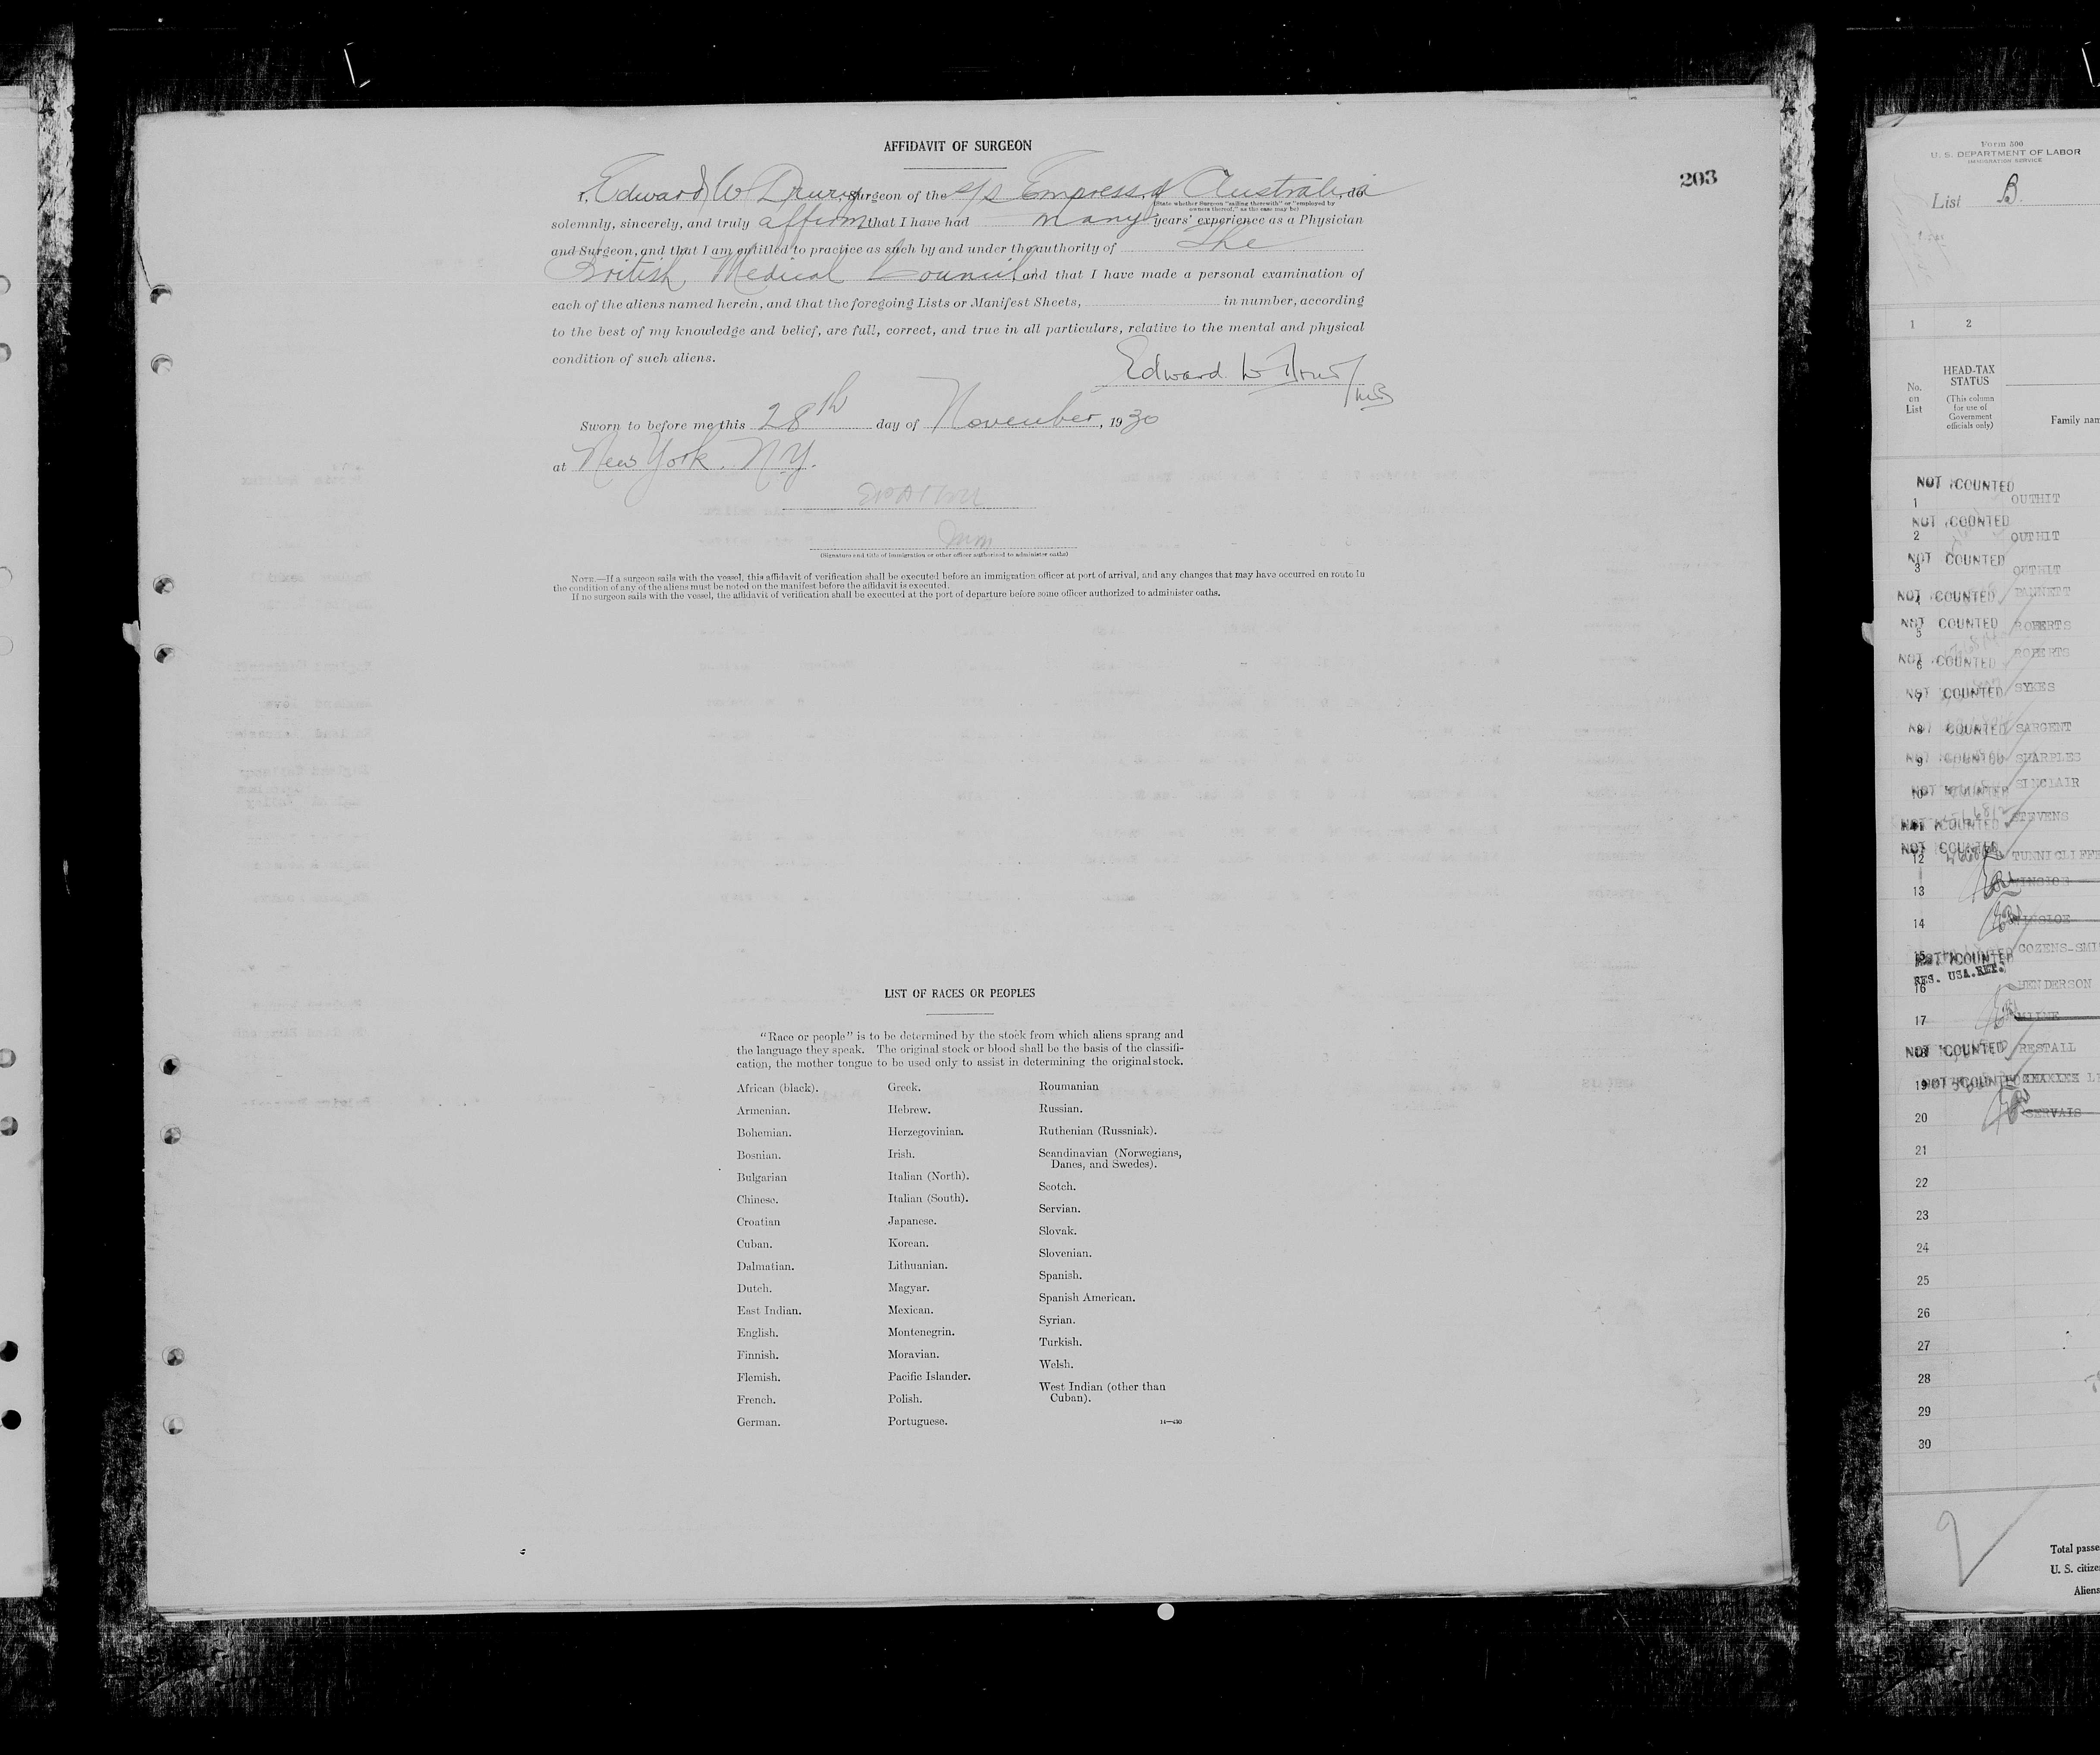 AFFIDAVIT OF SURGEON
203
I, Edward W Drury, Surgeon of the s/s Empress of Australia, do
(State whether Surgeon "sailing therewith" or "employed by
owners thereof," as the case may be)
solemnly, sincerely, and truly affirm that I have had many years' experience as a Physician
and Surgeon, and that I am entitled to practice as such by and under the authority of The
British Medical Council, and that I have made a personal examination of
each of the aliens named herein, and that the foregoing Lists or Manifest Sheets, in number, according
to the best of my knowledge and belief, are full, correct, and true in all particulars, relative to the mental and physical
condition of such aliens.
Edward W Drury
Sworn to before me this 28th day of November, 1930
at New York. N.Y.
(Signature and title of immigration or other officer authorized to administer oaths)
NOTE.—If a surgeon sails with the vessel, this affidavit of verification shall be executed before an immigration officer at port of arrival, and any changes that may have occurred en route in
the condition of any of the aliens must be noted on the manifest before the affidavit is executed.
If no surgeon sails with the vessel, the affidavit of verification shall be executed at the port of departure before some officer authorized to administer oaths.
LIST OF RACES OR PEOPLES
"Race or people" is to be determined by the stock from which aliens sprang and
the language they speak. The original stock or blood shall be the basis of the classifi-
cation, the mother tongue to be used only to assist in determining the original stock.
African (black).
Armenian.
Bohemian.
Bosnian.
Bulgarian
Chinese.
Croatian
Cuban.
Dalmatian.
Dutch.
East Indian.
English.
Finnish.
Flemish.
French.
German.
Greek.
Hebrew.
Herzegovinian.
Irish.
Italian (North).
Italian (South).
Japanese.
Korean.
Lithuanian.
Magyar.
Mexican.
Montenegrin.
Moravian.
Pacific Islander.
Polish.
Portuguese.
Roumanian
Russian.
Ruthenian (Russniak).
Scandinavian (Norwegians,
Danes, and Swedes).
Scotch.
Servian.
Slovak.
Slovenian.
Spanish.
Spanish American.
Syrian.
Turkish.
Welsh.
West Indian (other than
Cuban).
Form 500
U. S. DEPARTMENT OF LABOR
IMMIGRATION SERVICE
List B.
1 2
No.
on
List
HEAD-TAX
STATUS
(This column
for use of
Government
officials only)
Family nam
NOT COUNTED
1 OUTHIT
NOT COUNTED
2 OUTHIT
NOT COUNTED
3 OUTHIT
NOT COUNTED
4
NOT COUNTED
5 ROBERTS
NOT COUNTED
6 ROBERTS
NOT COUNTED
7 SYKES
NOT COUNTED
8 SARGENT
NOT COUNTED
9 SHARPLES
NOT COUNTED
10 SINCLAIR
NOT COUNTED
11 STEVENS
NOT COUNTED
12 TUNNICLIFFE
13
14
15 COZENS-SMI
NOT COUNTED
RES. USA. RET.
16 HENDERSON
17
NOT COUNTED
18 RESTALL
NOT COUNTED
19
20 SERVAIS
21
22
23
24
25
26
27
28
29
30
Total passe
U. S. citize
Aliens